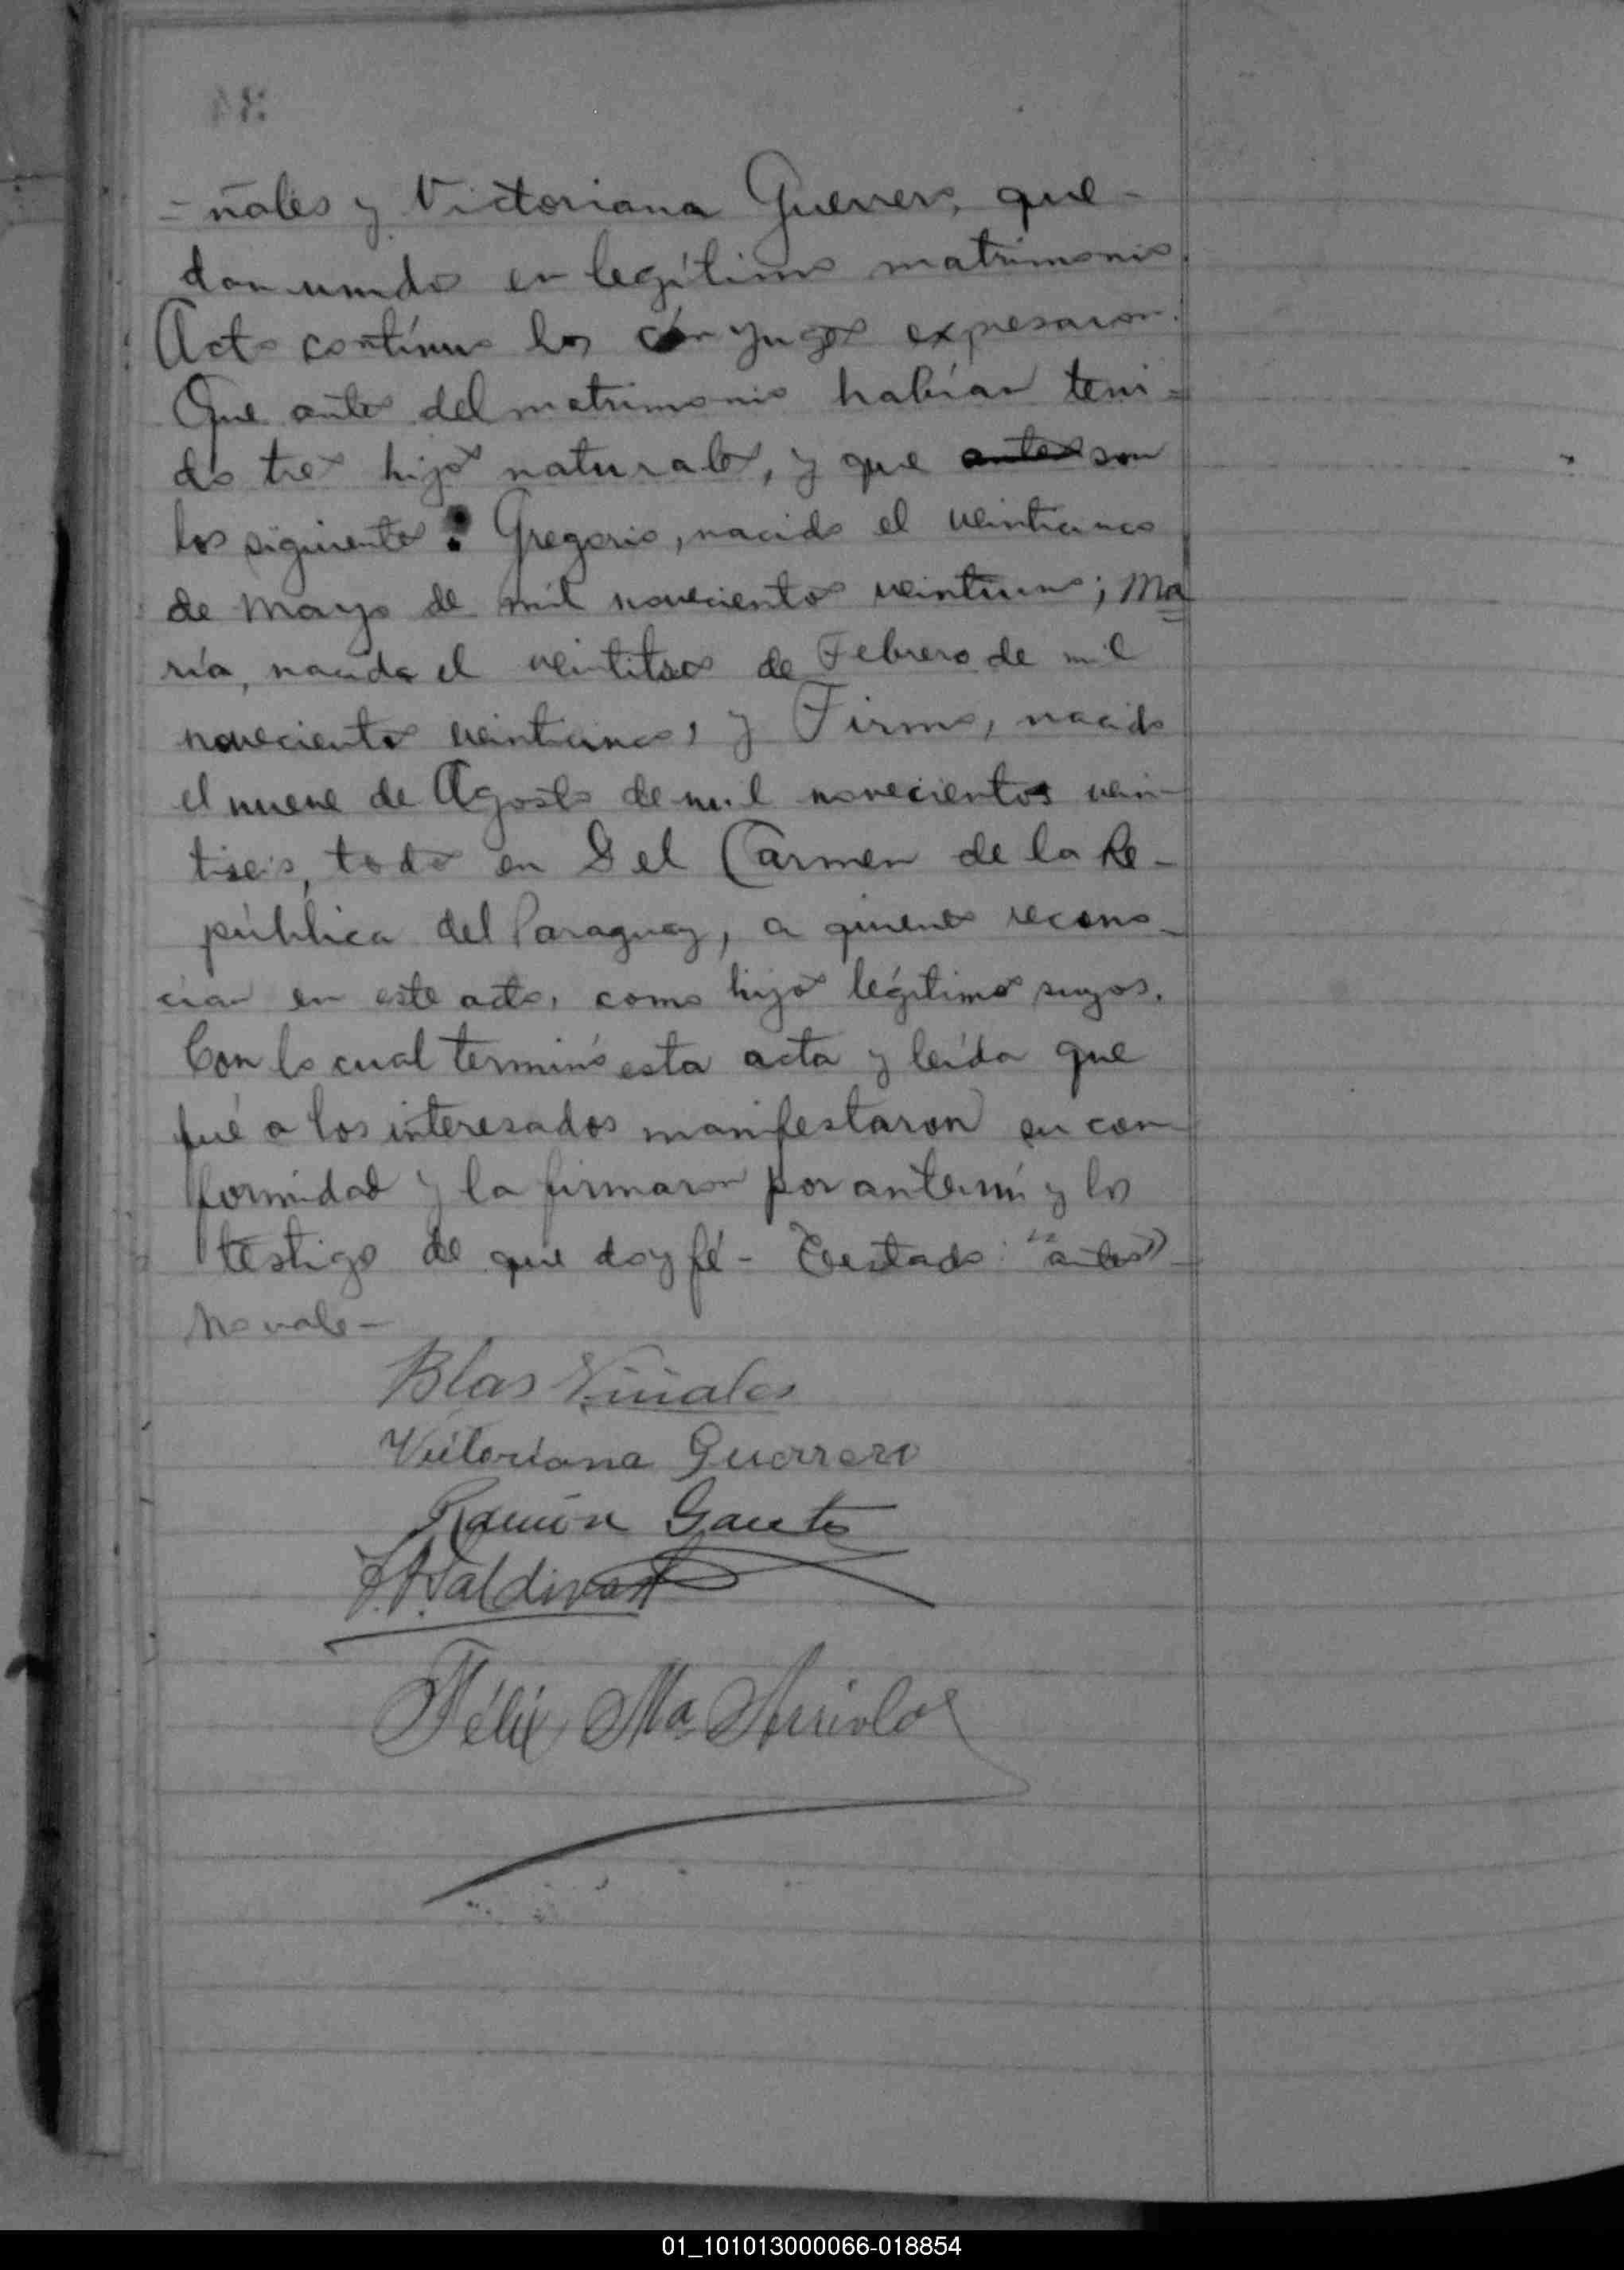 -ñales y Victoriana Guerrero, que-
dan unidos en legítimo matrimonio.
Acto contínuo los cónyuges expresaron:
Que antes del matrimonio habían teni=
do tres hijos naturales, y que antes son
los siguientes: Gregorio, nacido el veinticinco
de Mayo de mil novecientos veintiuno; Ma
ría, nacida el veintitres de Febrero de mil
novecientos veinticinco, y Firmo, nacido
el nueve de Agosto de mil novecientos vein-
tiseis, todos en Del Carmen de la Re-
pública del Paraguay, a quienes recono-
cían en este acto, como hijos legítimos suyos.
Con lo cual terminó esta acta y leída que
fué a los interesados manifestaron su con
formidad y la firmaron por ante mí y los
testigos de que doy fé - Testado: "antes" -
No vale -
Blas Viñales
Victoriana Guerrero
Ramón Gaute
Saldivar
Félix Ma
01_101013000066-018854